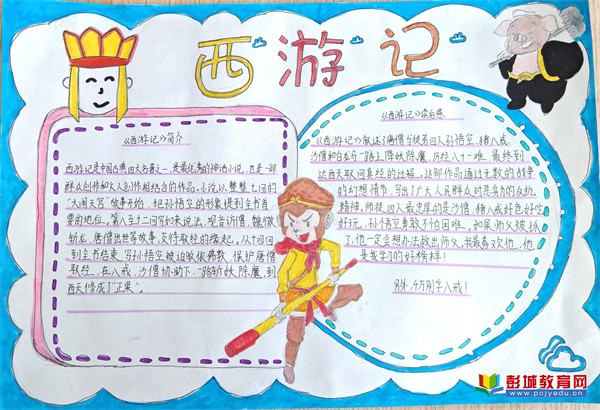 西游记
《西游记》简介
西游记是中国古典四大名著之一,是最优秀的神话小说,也是一部
群众创作和文人创作相结合的作品。小说以整整七回的
"大闹天宫"故事开始,把孙悟空的形象提到全书首
要的地位。第八至十二回写如来说法,观音访僧,魏徵
斩龙,唐僧出世等故事,交待取经的缘起。从十四回
到全书结束,写孙悟空被迫皈依佛教,保护唐僧
取经,在八戒,沙僧协助下,一路斩妖除魔,到
西天修成了"正果"。
《西游记》读后感
《西游记》叙述了唐僧与徒弟四人孙悟空,猪八戒,
沙僧和白龙马一路上降妖除魔,历经八十一难,最终到
达西天取回真经的过程。这部作品通过无数的战争
的幻想情节,写出了广大人民群众对恶势力的反抗
精神,师徒四人最忠厚的是沙僧,猪八戒好色好吃
好玩,孙悟空勇敢不怕困难,如果师父被抓
了,他一定会想办法救出师父,我最喜欢他,他
是我学习的好榜样!
别学八戒!
彭城教育网
www.pcjyedu.cn